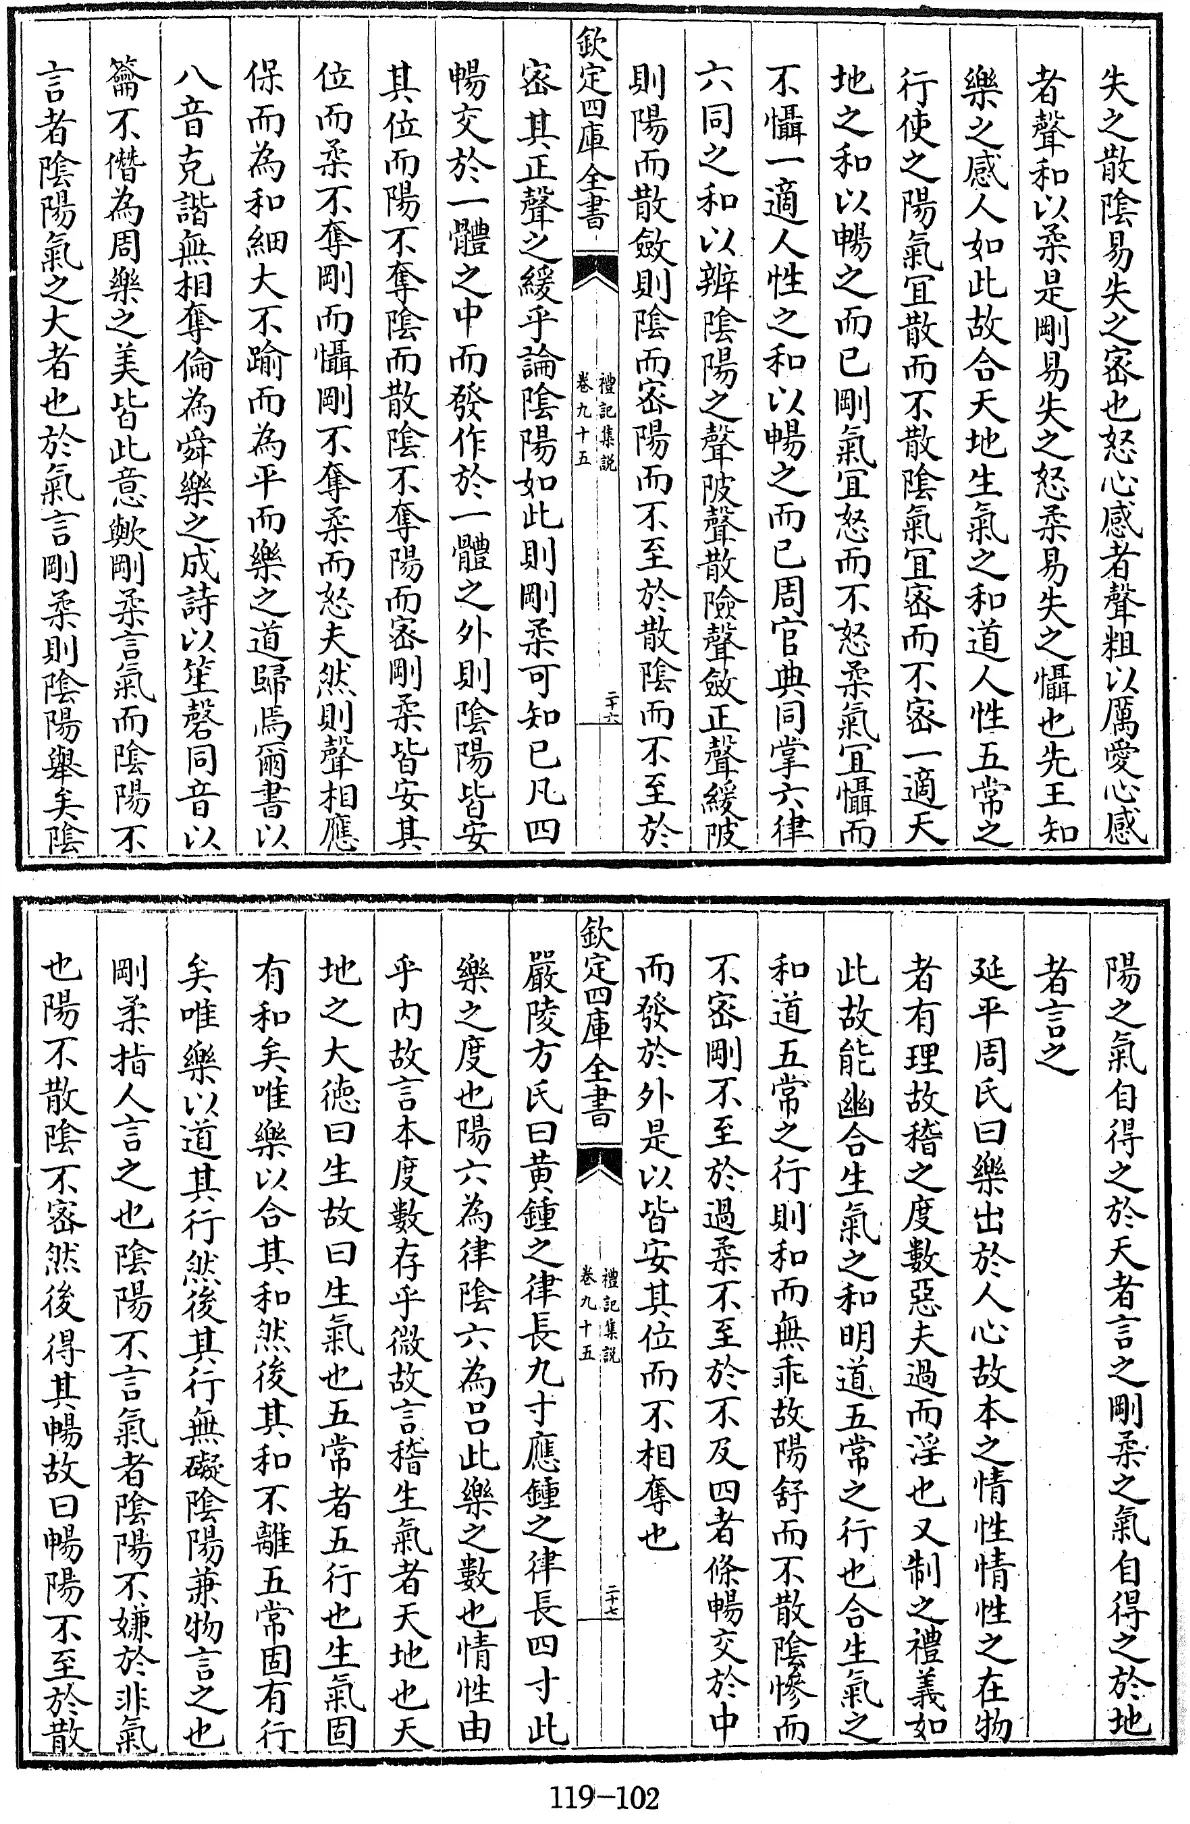 失之散陰易失之密也怒心感者聲粗以厲愛心感
者聲和以柔是剛易失之怒柔易失之懾也先王知
樂之感人如此故合天地生氣之和道人性五常之
行使之陽氣宜散而不散陰氣宜密而不密一適天
地之和以暢之而已剛氣宜怒而不怒柔氣宜懾而
不懾一適人性之和以暢之而已周官典同掌六律
六同之和以辨陰陽之聲陂聲散險聲斂正聲緩陂
則陽而散斂則陰而密陽而不至於散陰而不至於
欽定四庫全書
禮記集説
卷九十五
二十六
密其正聲之緩乎論陰陽如此則剛柔可知已凡四
暢交於一體之中而發作於一體之外則陰陽皆安
其位而陽不奪陰而散陰不奪陽而密剛柔皆安其
位而柔不奪剛而懾剛不奪柔而怒夫然則聲相應
保而為和細大不踰而為平而樂之道歸焉爾書以
八音克諧無相奪倫為舜樂之成詩以笙磬同音以
籥不僭為周樂之美皆此意歟剛柔言氣而陰陽不
言者陰陽氣之大者也於氣言剛柔則陰陽舉矣陰
陽之氣自得之於天者言之剛柔之氣自得之於地
者言之
延平周氏曰樂出於人心故本之情性情性之在物
者有理故稽之度數惡夫過而淫也又制之禮義如
此故能幽合生氣之和明道五常之行也合生氣之
和道五常之行則和而無乖故陽舒而不散陰慘而
不密剛不至於過柔不至於不及四者條暢交於中
而發於外是以皆安其位而不相奪也
欽定四庫全書
禮記集説
卷九十五
二十七
嚴陵方氏曰黄鍾之律長九寸應鍾之律長四寸此
樂之度也陽六為律陰六為呂此樂之數也情性由
乎内故言本度數存乎微故言稽生氣者天地也天
地之大徳曰生故曰生氣也五常者五行也生氣固
有和矣唯樂以合其和然後其和不離五常固有行
矣唯樂以道其行然後其行無礙陰陽兼物言之也
剛柔指人言之也陰陽不言氣者陰陽不嫌於非氣
也陽不散陰不密然後得其暢故曰暢陽不至於散
119-102